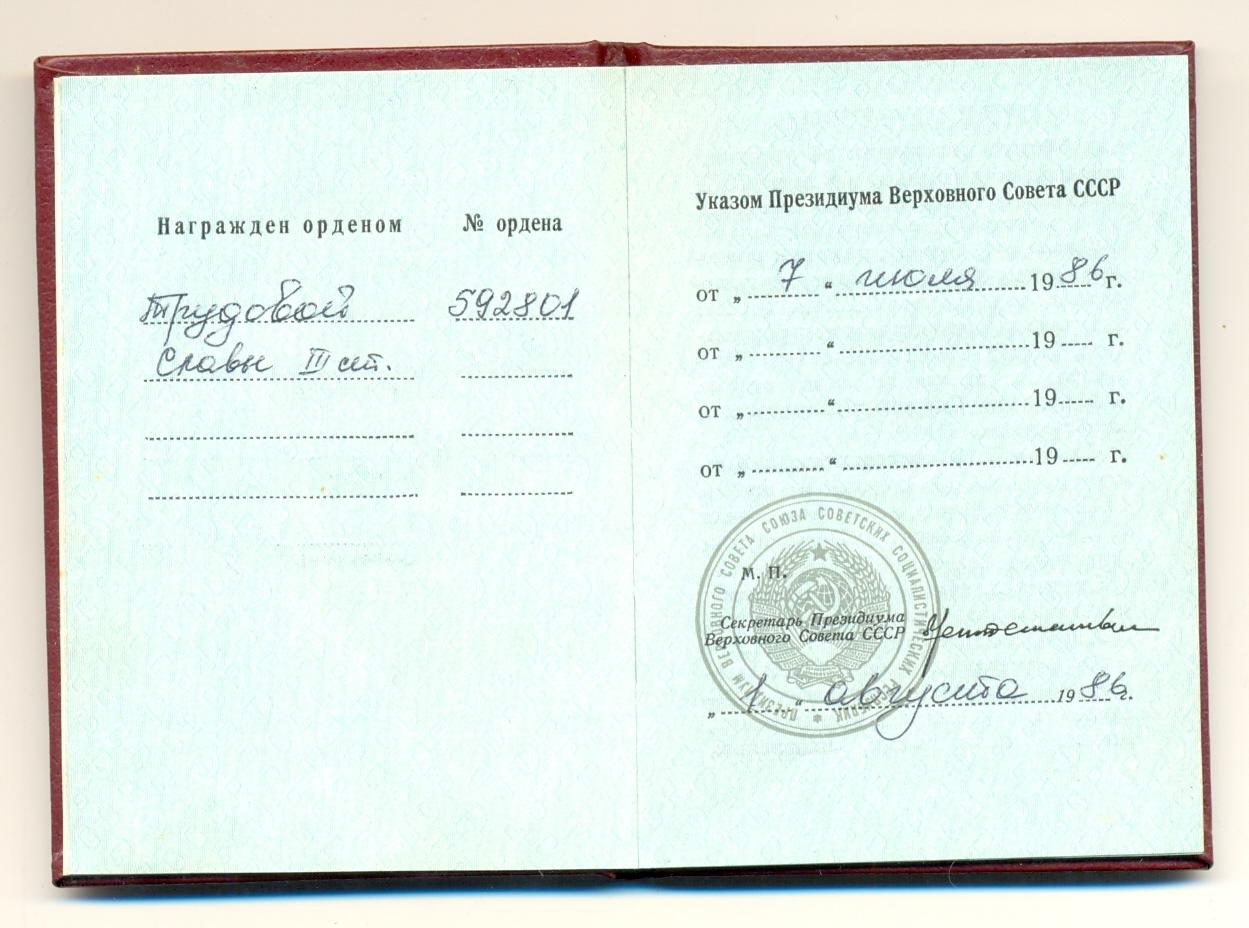 Награжден орденом № ордена
Трудовой 592801
Славы III ст.
Указом Президиума Верховного Совета СССР
от „ 7 “ июля 1986 г.
от „ “ 19 г.
от „ “ 19 г.
от „ “ 19 г.
ПРЕЗИДИУМ ВЕРХОВНОГО СОВЕТА СОЮЗА СОВЕТСКИХ СОЦИАЛИСТИЧЕСКИХ РЕСПУБЛИК
М. П.
Секретарь Президиума
Верховного Совета СССР
„ 1 “ августа 1986 г.